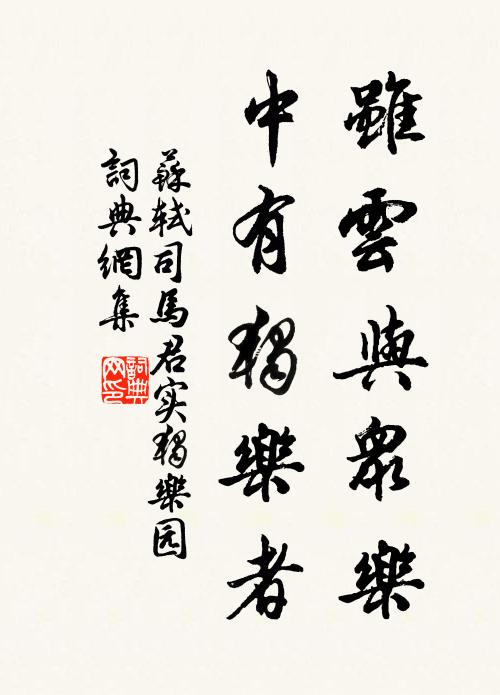 雖雲與眾樂
中有獨樂者
蘇軾司馬君实獨樂园
詞典網集
詞典网印